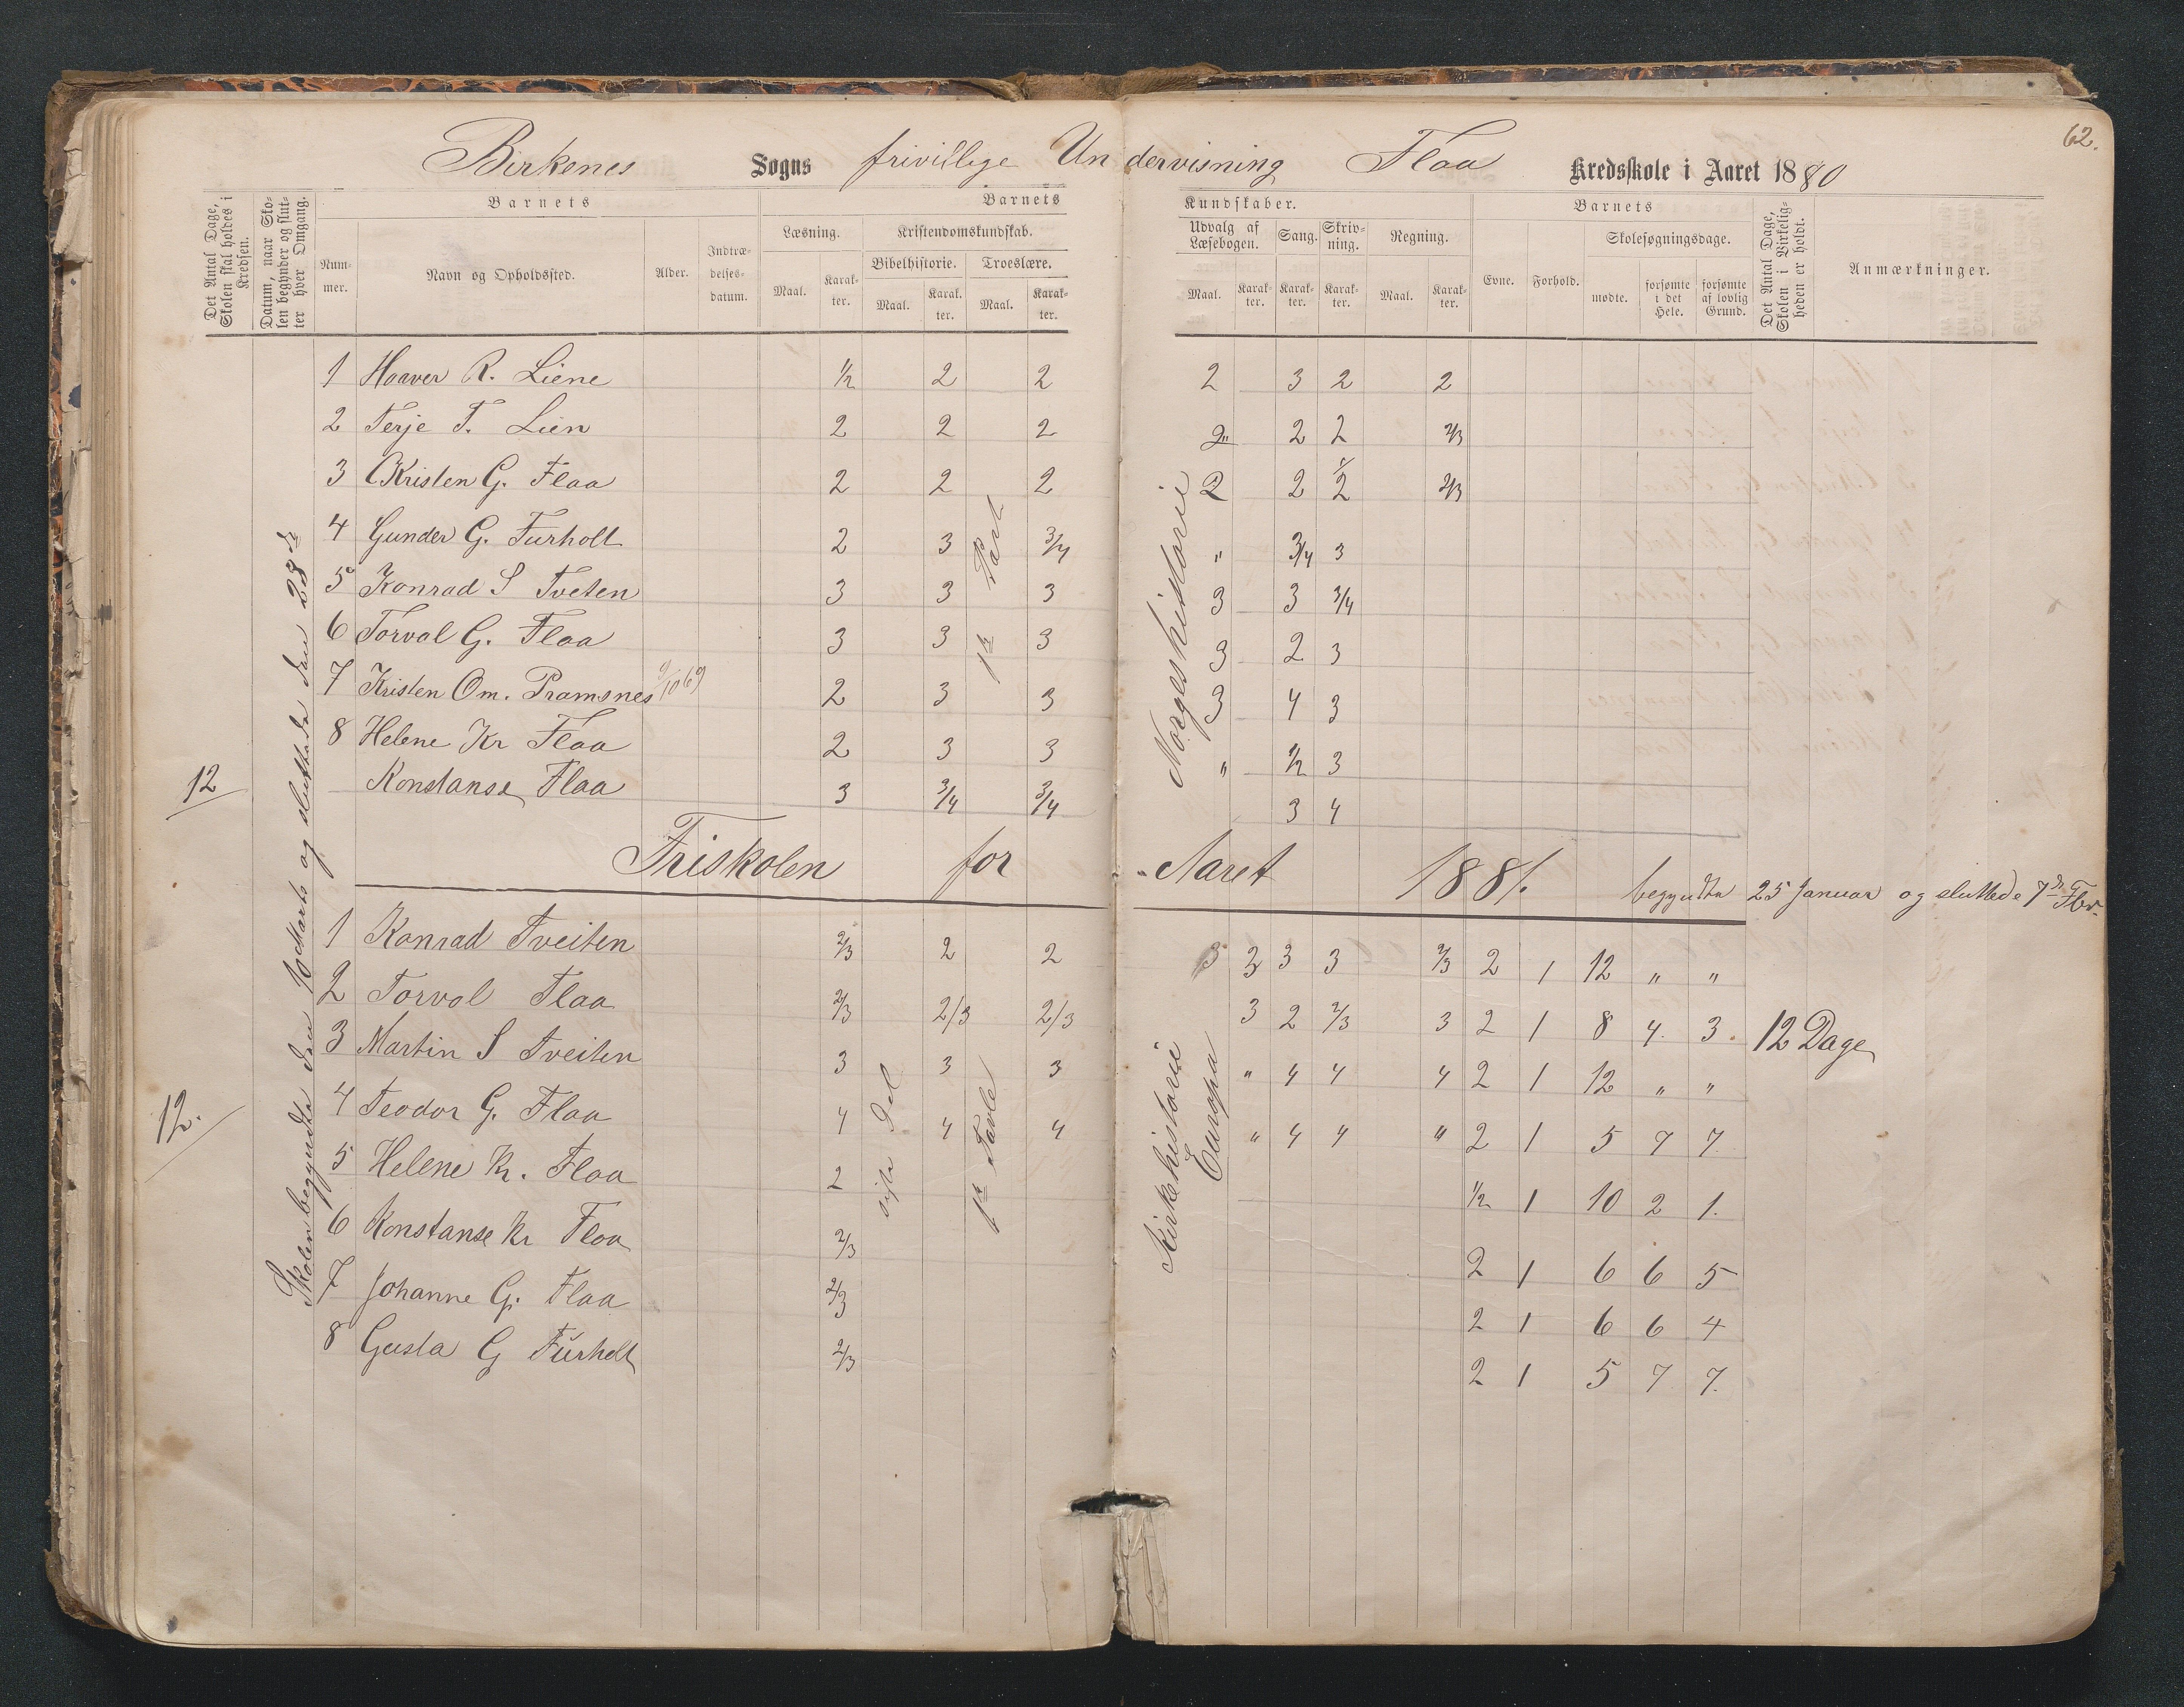 62.
Birkenes Sogns frivillige Undervisning Flaa Kredsskole i Aaret 1880
Det Antal Dage, Skolen skal holdes i Kredsen.
Datum, naar Skolen begynder og slutter hver Omgang.
Barnets
Barnets Kundskaber.
Barnets
Det Antal Dage, Skolen i Virkeligheden er holdt.
Anmærkninger.
Nummer.
Navn og Opholdssted.
Alder.
Indtrædelsesdatum.
Læsning.
Kristendomskundskab.
Udvalg af Læsebogen.
Sang.
Skrivning.
Regning.
Evne.
Forhold.
Skolesøgningsdage.
Bibelhistorie.
Troeslære.
Maal. Karakter. Maal. Karakter. Maal. Karakter. Maal. Karakter. Karakter. Karakter. Maal. Karakter. mødte. forsømte i det Hele. forsømte af lovlig Grund.
1 Haaver R. Liene 1/2 2 2 2 3 2 2
2 Terje T. Lien 2 2 2 2" 2 2 2/3
3 Kristen G. Flaa 2 2 2 2 2 1/2 2/3
4 Gunder G. Furholt 2 3 3/4 " 3/4 3
5 Konrad S Tveten 3 3 3 3 3 3/4
6 Torval G. Flaa 3 3 3 3 2 3
7 Kristen Om. Pramsnes 9/10 69 2 3 3 3 4 3
8 Helene Kr Flaa 2 3 3 " 1/2 3
Konstanse Flaa 3 3/4 3/4 3 4
12
Skolen begyndte den 10 Marts og sluttede den 23de
1ste Part
Norgeshistorie
Friskolen for Aaret 1881. begyndte 25 Januar og sluttede 7de Fbr.
1 Konrad Tveiten 2/3 2 2 3 3 3 3 2/3 2 1 12 " "
2 Torval Flaa 2/3 2/3 2/3 3 2 2/3 3 2 1 8 4. 3. 12 Dage
3 Martin S Tveiten 3 3 3 " 4 4 4 2 1 12 " "
4 Teodor G. Flaa 4 4 4 " 4 4 " 2 1 5 7 7
5 Helene K. Flaa 2 1/2 1 10 2 1.
6 Konstanse Kr Flaa 2/3 2 1 6 6 5
7 Johanne G. Flaa 2/3 2 1 6 6 4
8 Gusta G Furholt 2/3 2 1 5 7 7.
12.
sidste Del
1ste Tavle
Kirkehistorie
Europa